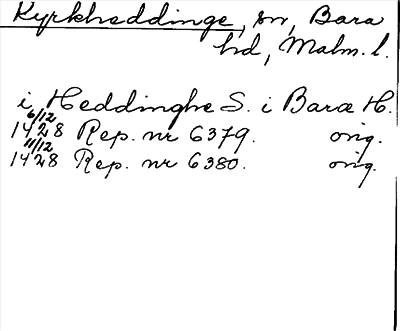 Kyrkheddinge, sn, Bara
hd, Malm. l.
i Heddinghe S. i Baræ H.
6/12
1428 Rep. nr 6379. orig.
11/12
1428 Rep. nr 6380. orig.